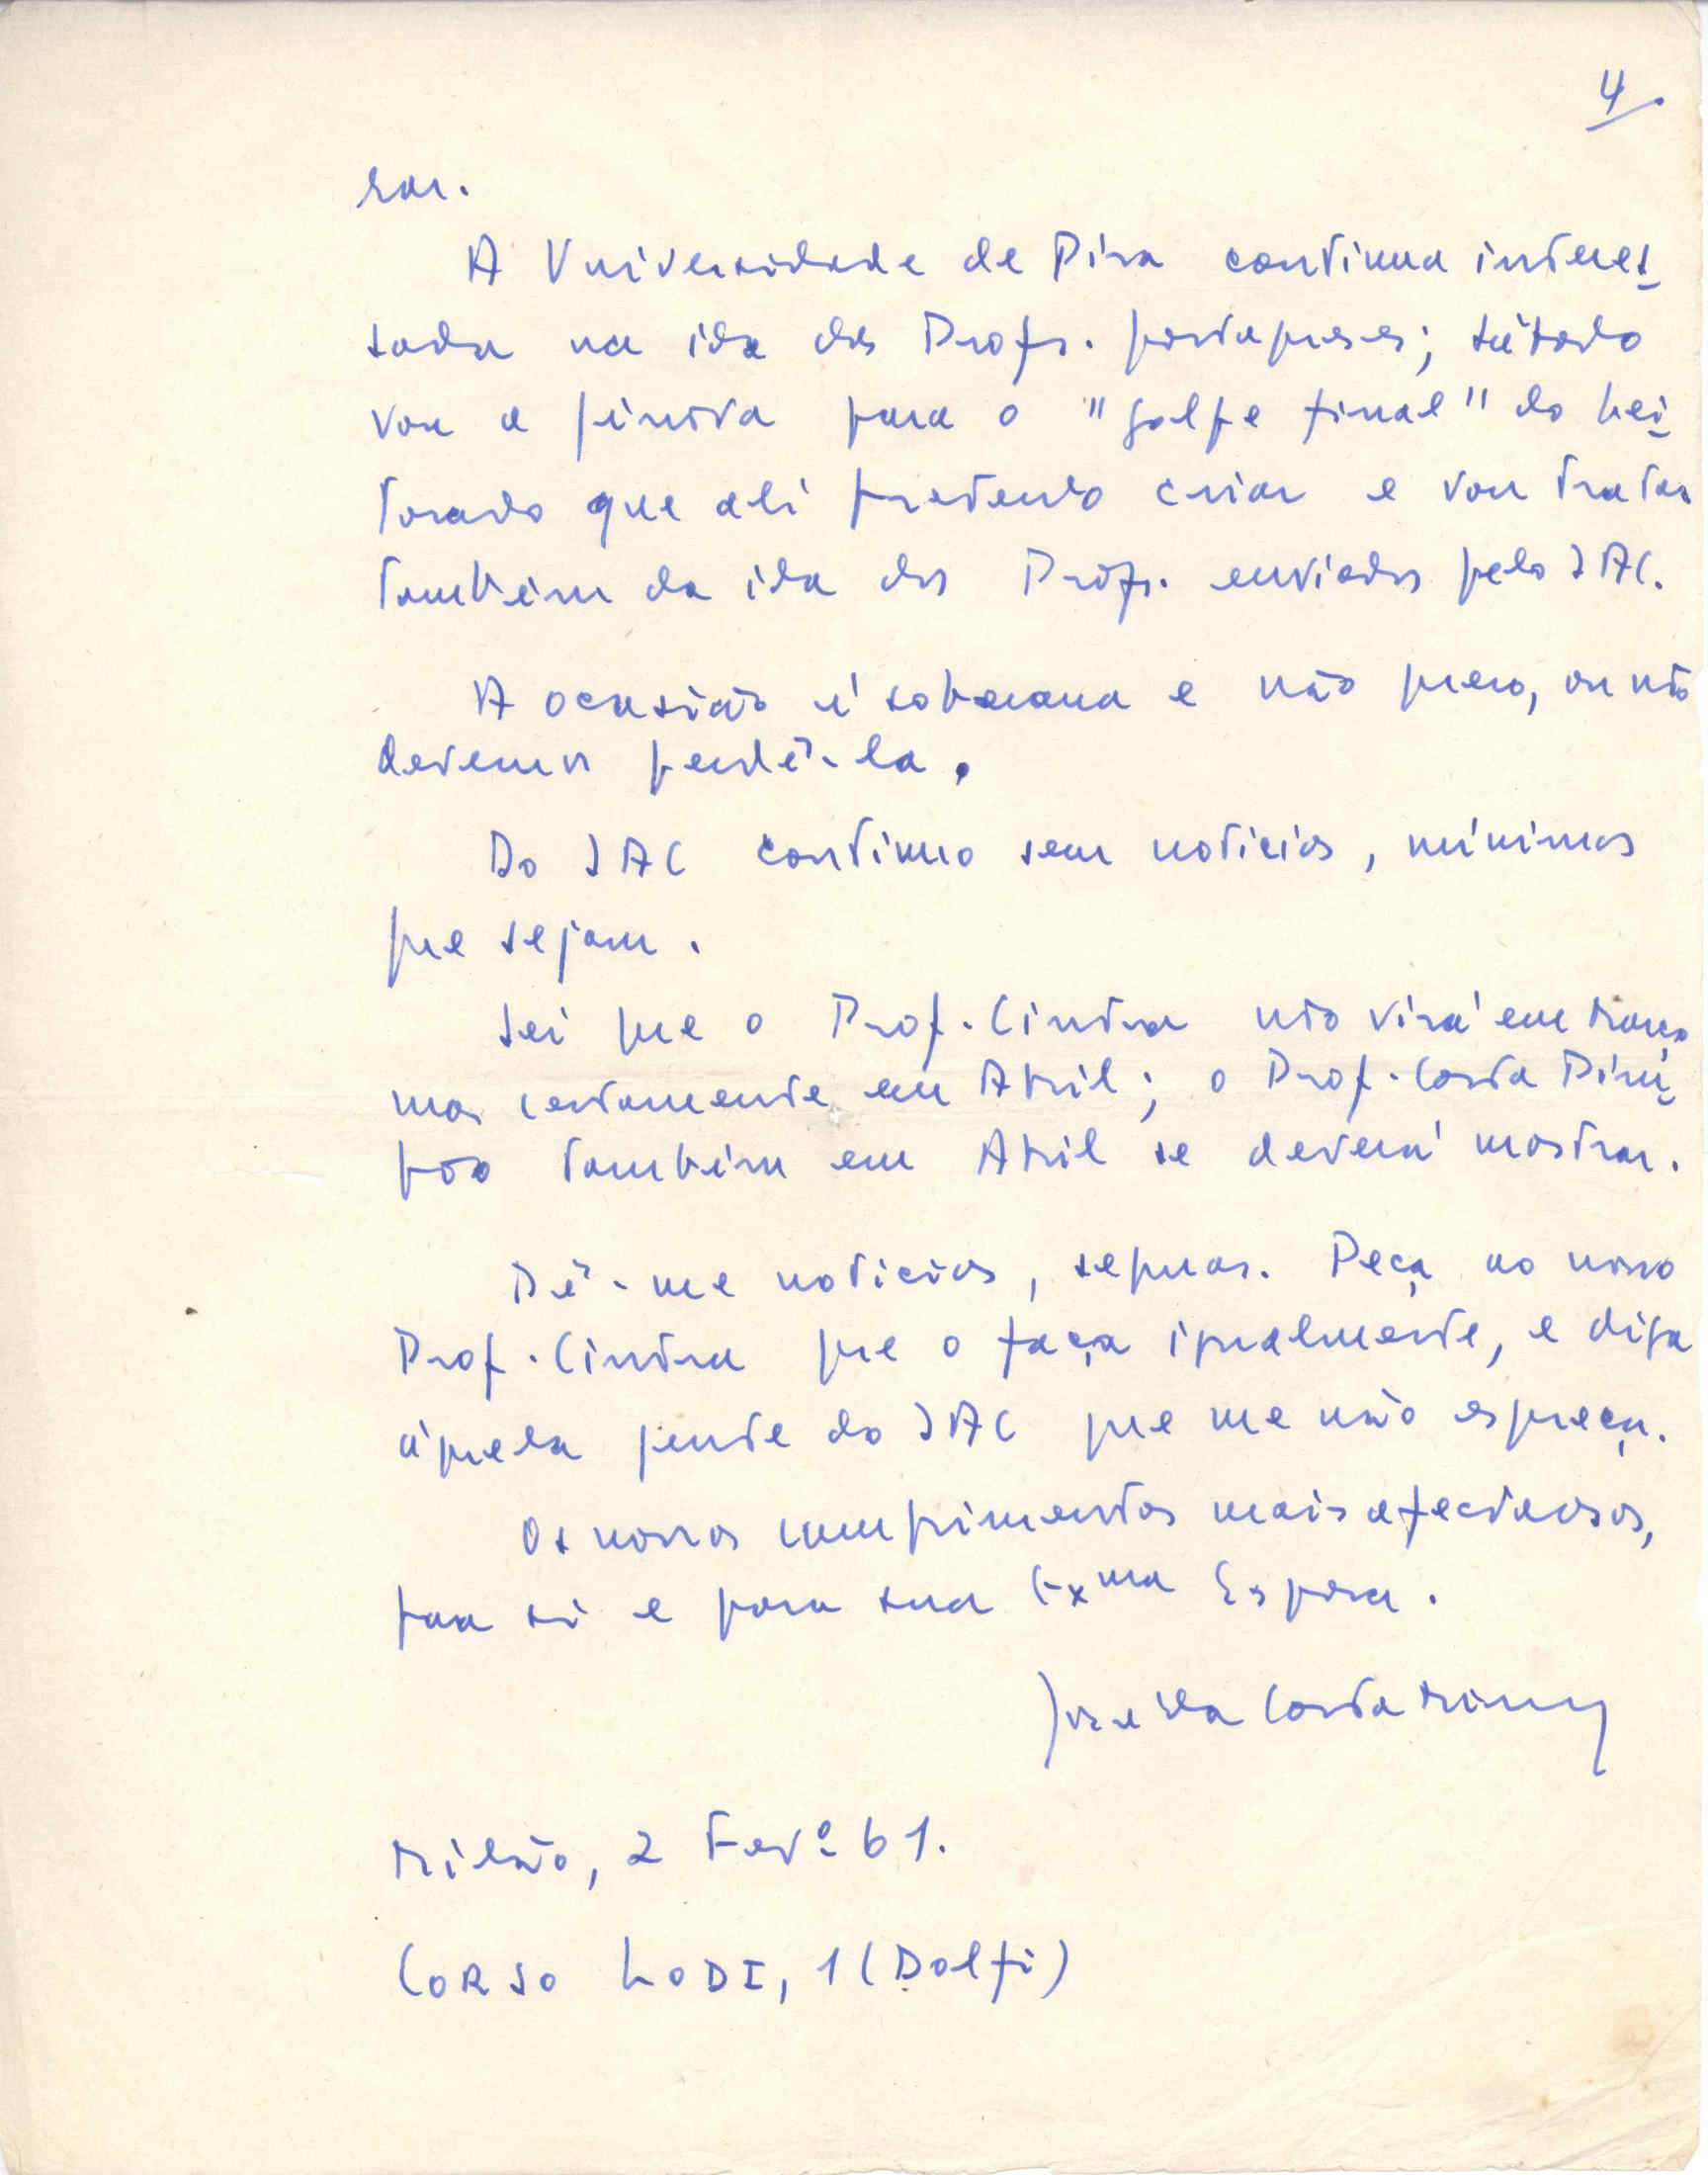 4.
rar.
A Universidade de Pisa continua interes-
sada na ida dos Profs. portugueses; sábado
vou a
para o "golpe final" do lei-
torado que ali pretendo criar e vou tratar
também da ida dos Profs. enviados pelo IAC.
A ocasião é soberana e não quero, ou não
devemos perdê-la.
Do IAC continuo sem noticias, mínimas
que sejam.
Sei que o Prof. Cintra não virá em Março
mas certamente em Abril; o Prof. Costa Pim-
pão também em Abril se deverá mostrar.
Dê-me noticias, seguras. Peça ao nosso
Prof. Cintra que o faça igualmente, e diga
àquela gente do IAC que me não esqueça.
Os nossos cumprimentos mais afectuosos,
para si e para sua Exma Esposa.
José da Costa Miranda
Milão, 2 Fevº 61.
CORSO LODI, 1 (Dolfi)